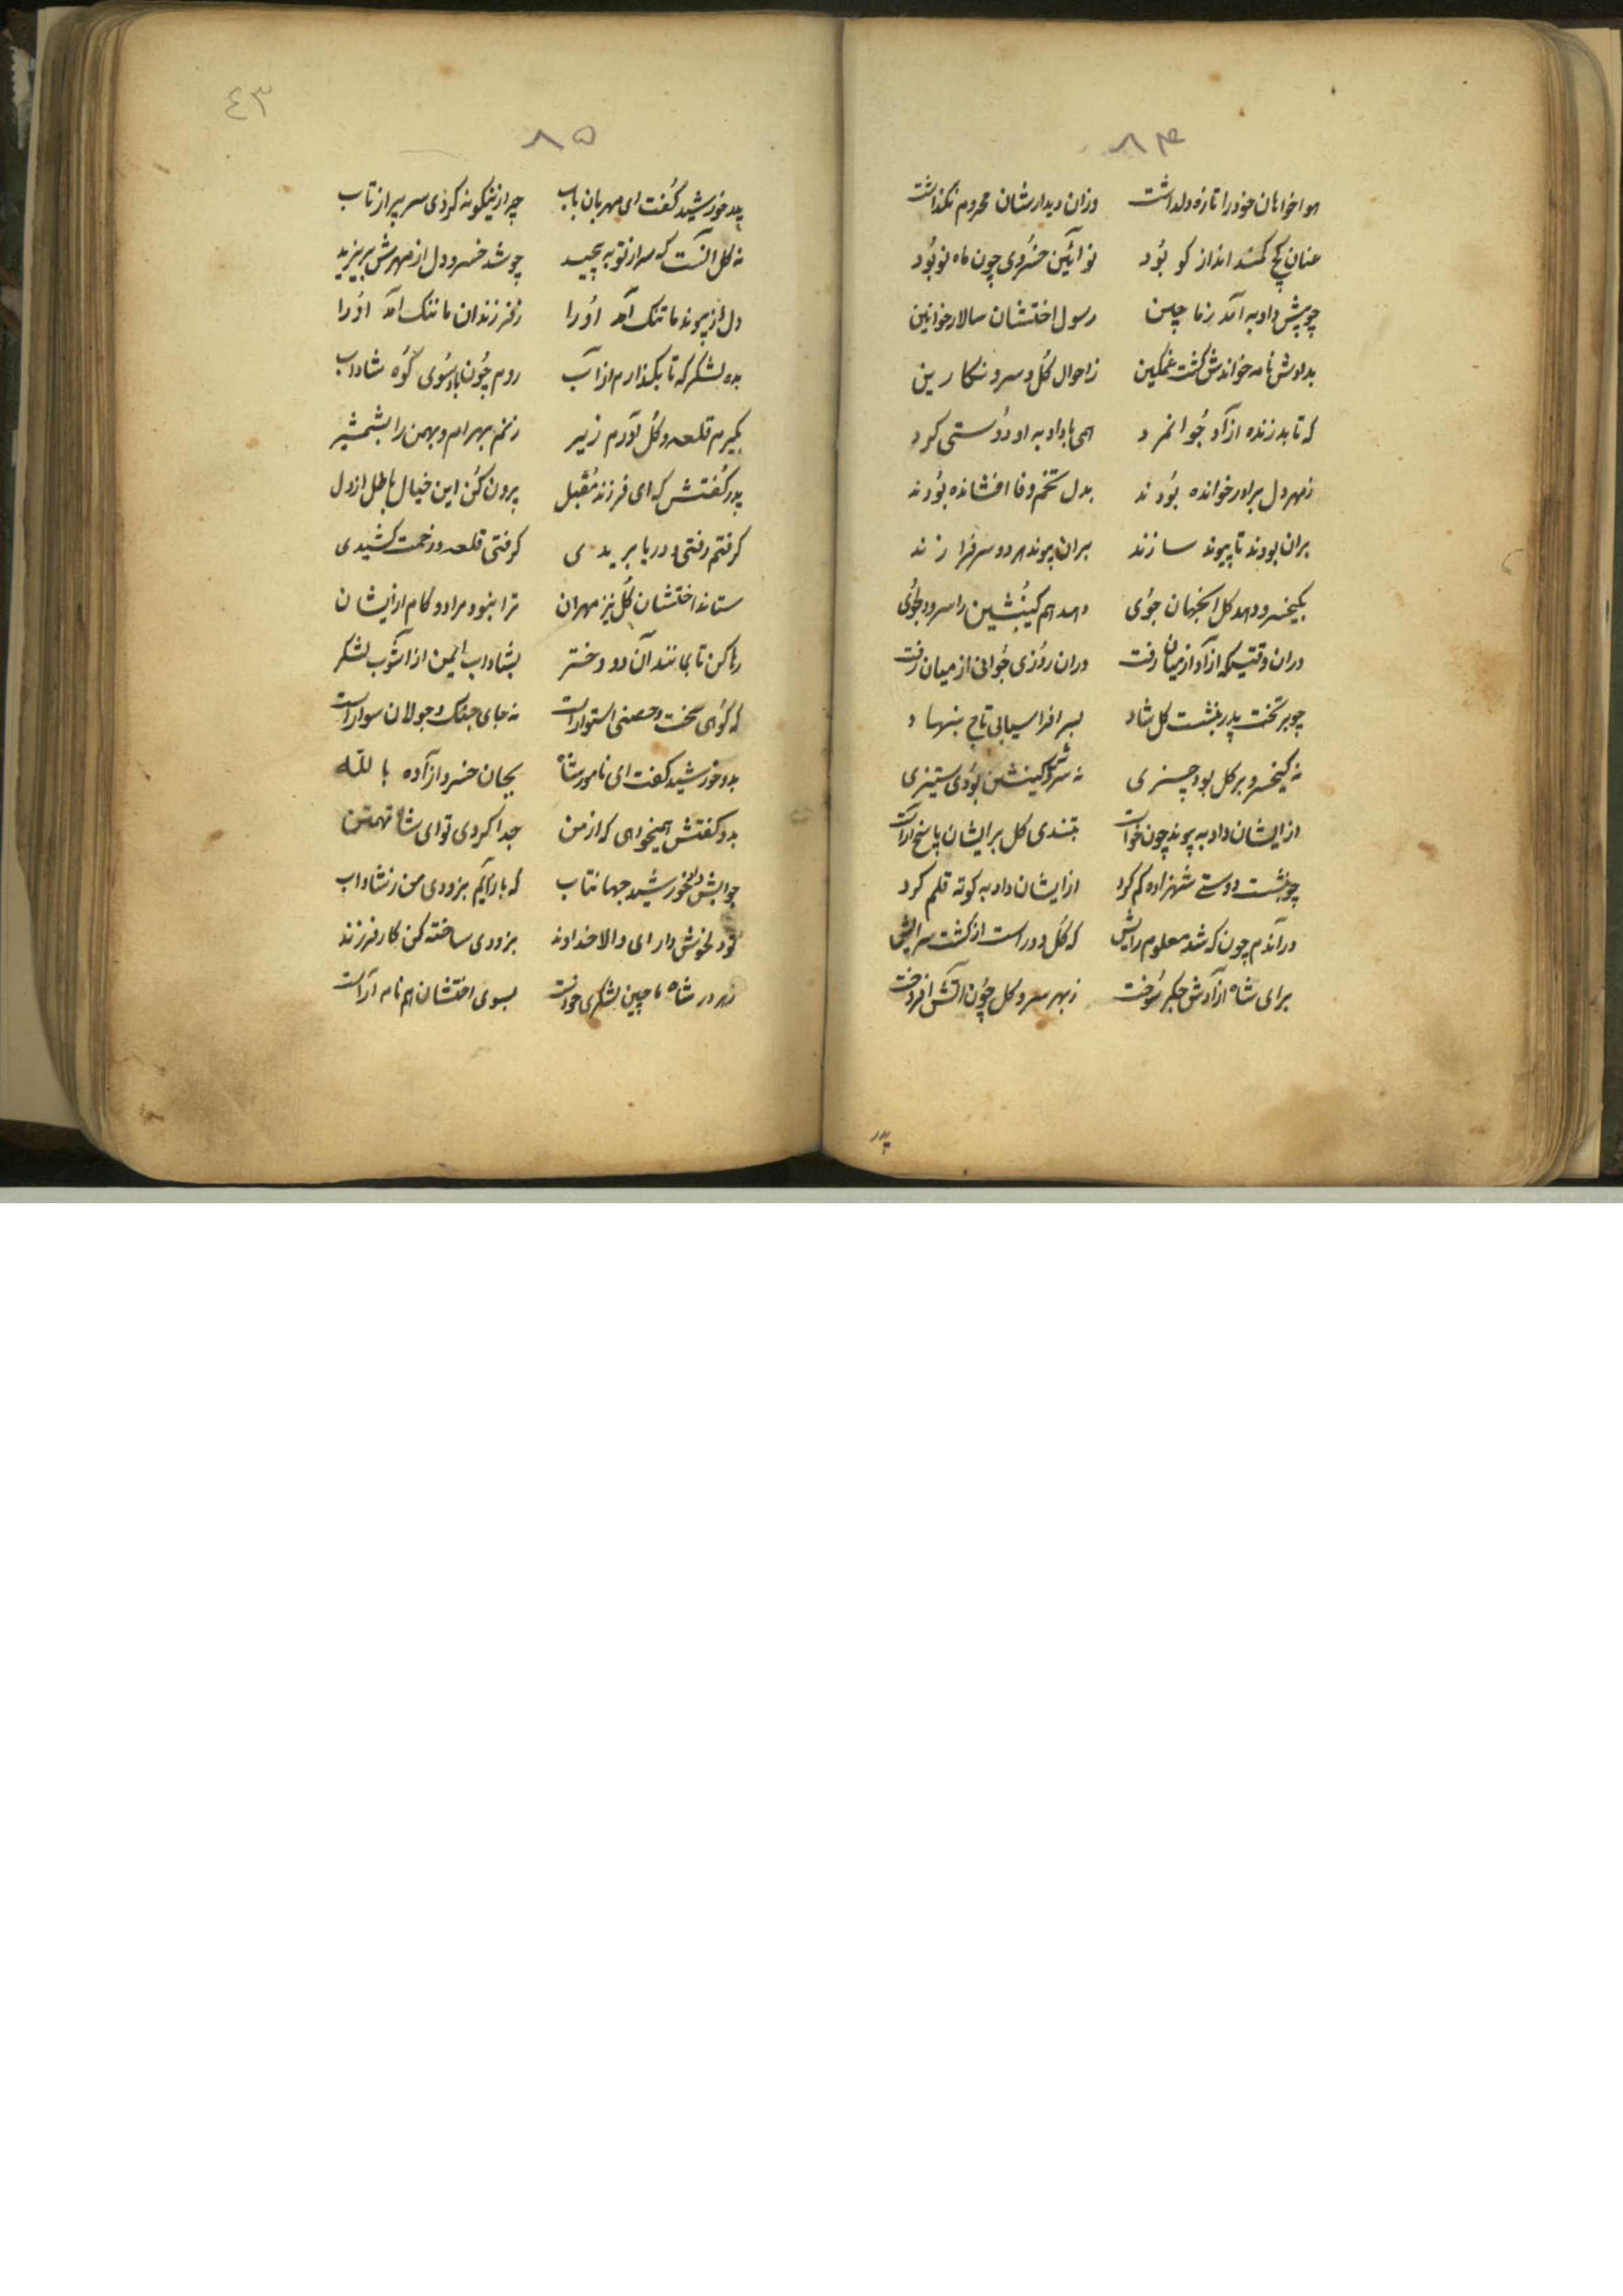 ۸۴
هواخواهان خود را تازه دلداشت وزان دیدارشان محروم نگذاشت
عنان کج کمند انداز کو بود نو آئین خسروی چون ماه نو بود
چو پیش دادبه آمد ز ماچین رسول اختشان سالار خوانین
بدادش نامه خواندش گشت غمگین ز احوال گل و سرو نگارین
که تا بد زنده آزاد جوانمرد همی با دادبه او دوستی کرد
ز مهر دل برادر خوانده بودند بدل تخم وفا افشانده بودند
بران بودند تا پیوند سازند بران پیوند هر دو سرفرازند
بکیخسرو دهد گل جهان جوی دهد هم را سرو دلجوی
دران وقتیکه آزاد از میان رفت دران روزی جوانی از میان رفت
چو بر تخت پدر بنشست گل شاد بسر افراسیابی تاج بنهاد
نه کیخسرو بر گل بود چیزی نه سروش بودی ستیزی
ازایشان دادبه پیوند چون خواست بتندی گل برایشان پاسخ آراست
چو پشت دوستی شهزاده خم کرد ازایشان دادبه کوته قلم کرد
درآندم چون که شد معلوم رایش که گل دور است از گشت سرایش
برای شاه آزادش جگر سوخت ز بهر سرو گل چون آتش افروخت
پدر
٤٣
۸۵
پدر خورشید گفت ای مهربان باب چرا زینگونه کردی سر پر از تاب
نه گل آنست که سر از تو بپیچید چو شد خسرو دل از مهرش بپرهیزید
دل از پیوند ما تنک آمد او را ز فرزندان ما ننک آمد او را
بده لشکر که تا بگذارم از آب روم چون باد سوی کوه شاداب
بگیرم قلعه و گل آورم زیر زنم بهرام و بهمن را بشمشیر
پدر گفتش که ای فرزند مقبل برون کن این خیال باطل از دل
گرفتم رفتی و دریا بریدی گرفتی قلعه و زحمت کشیدی
ستاند اختشان گل نیز مهران ترا نبود مراد و کام ازایشان
رها کن تا بمانند آن دو دختر بشاداب ایمن از آشوب لشکر
که کوهی سخت و حصنی استوار است نه جای جنک و جولان سوار است
بدو خورشید گفت ای نامور شاه بجان خسرو آزاده بالله
بدو گفتش همیخواهی که از من جدا کردی تو ای شاه تهمتن
جوابش داد خورشید جهانتاب که باز آیم بزودی من ز شاداب
تو دلخوش دار ای والا خداوند بزودی ساخته کن کار فرزند
شاه ماچین لشکری خواست بسوی اختشان هم نامه آراست